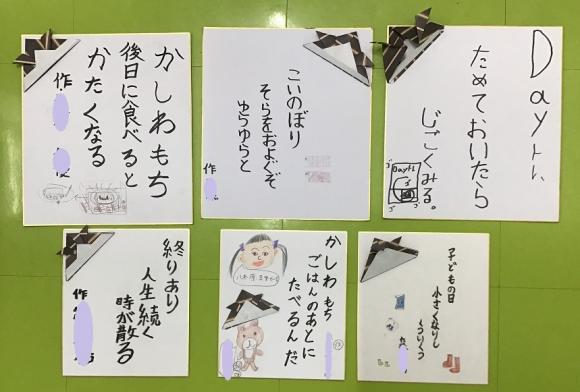 かしわもち
後日に食べると
かたくなる
作
こいのぼり
そらをおよぐぞ
ゆらゆらと
作
Dayトレ
ためておいたら
じごくみる。
Dayトレ
ゴ
ゴ
ゴ
終りあり
人生続く
時が散る
作
かしわもち
ごはんのあとに
たべるんだ
子どもの日
小さくなりし